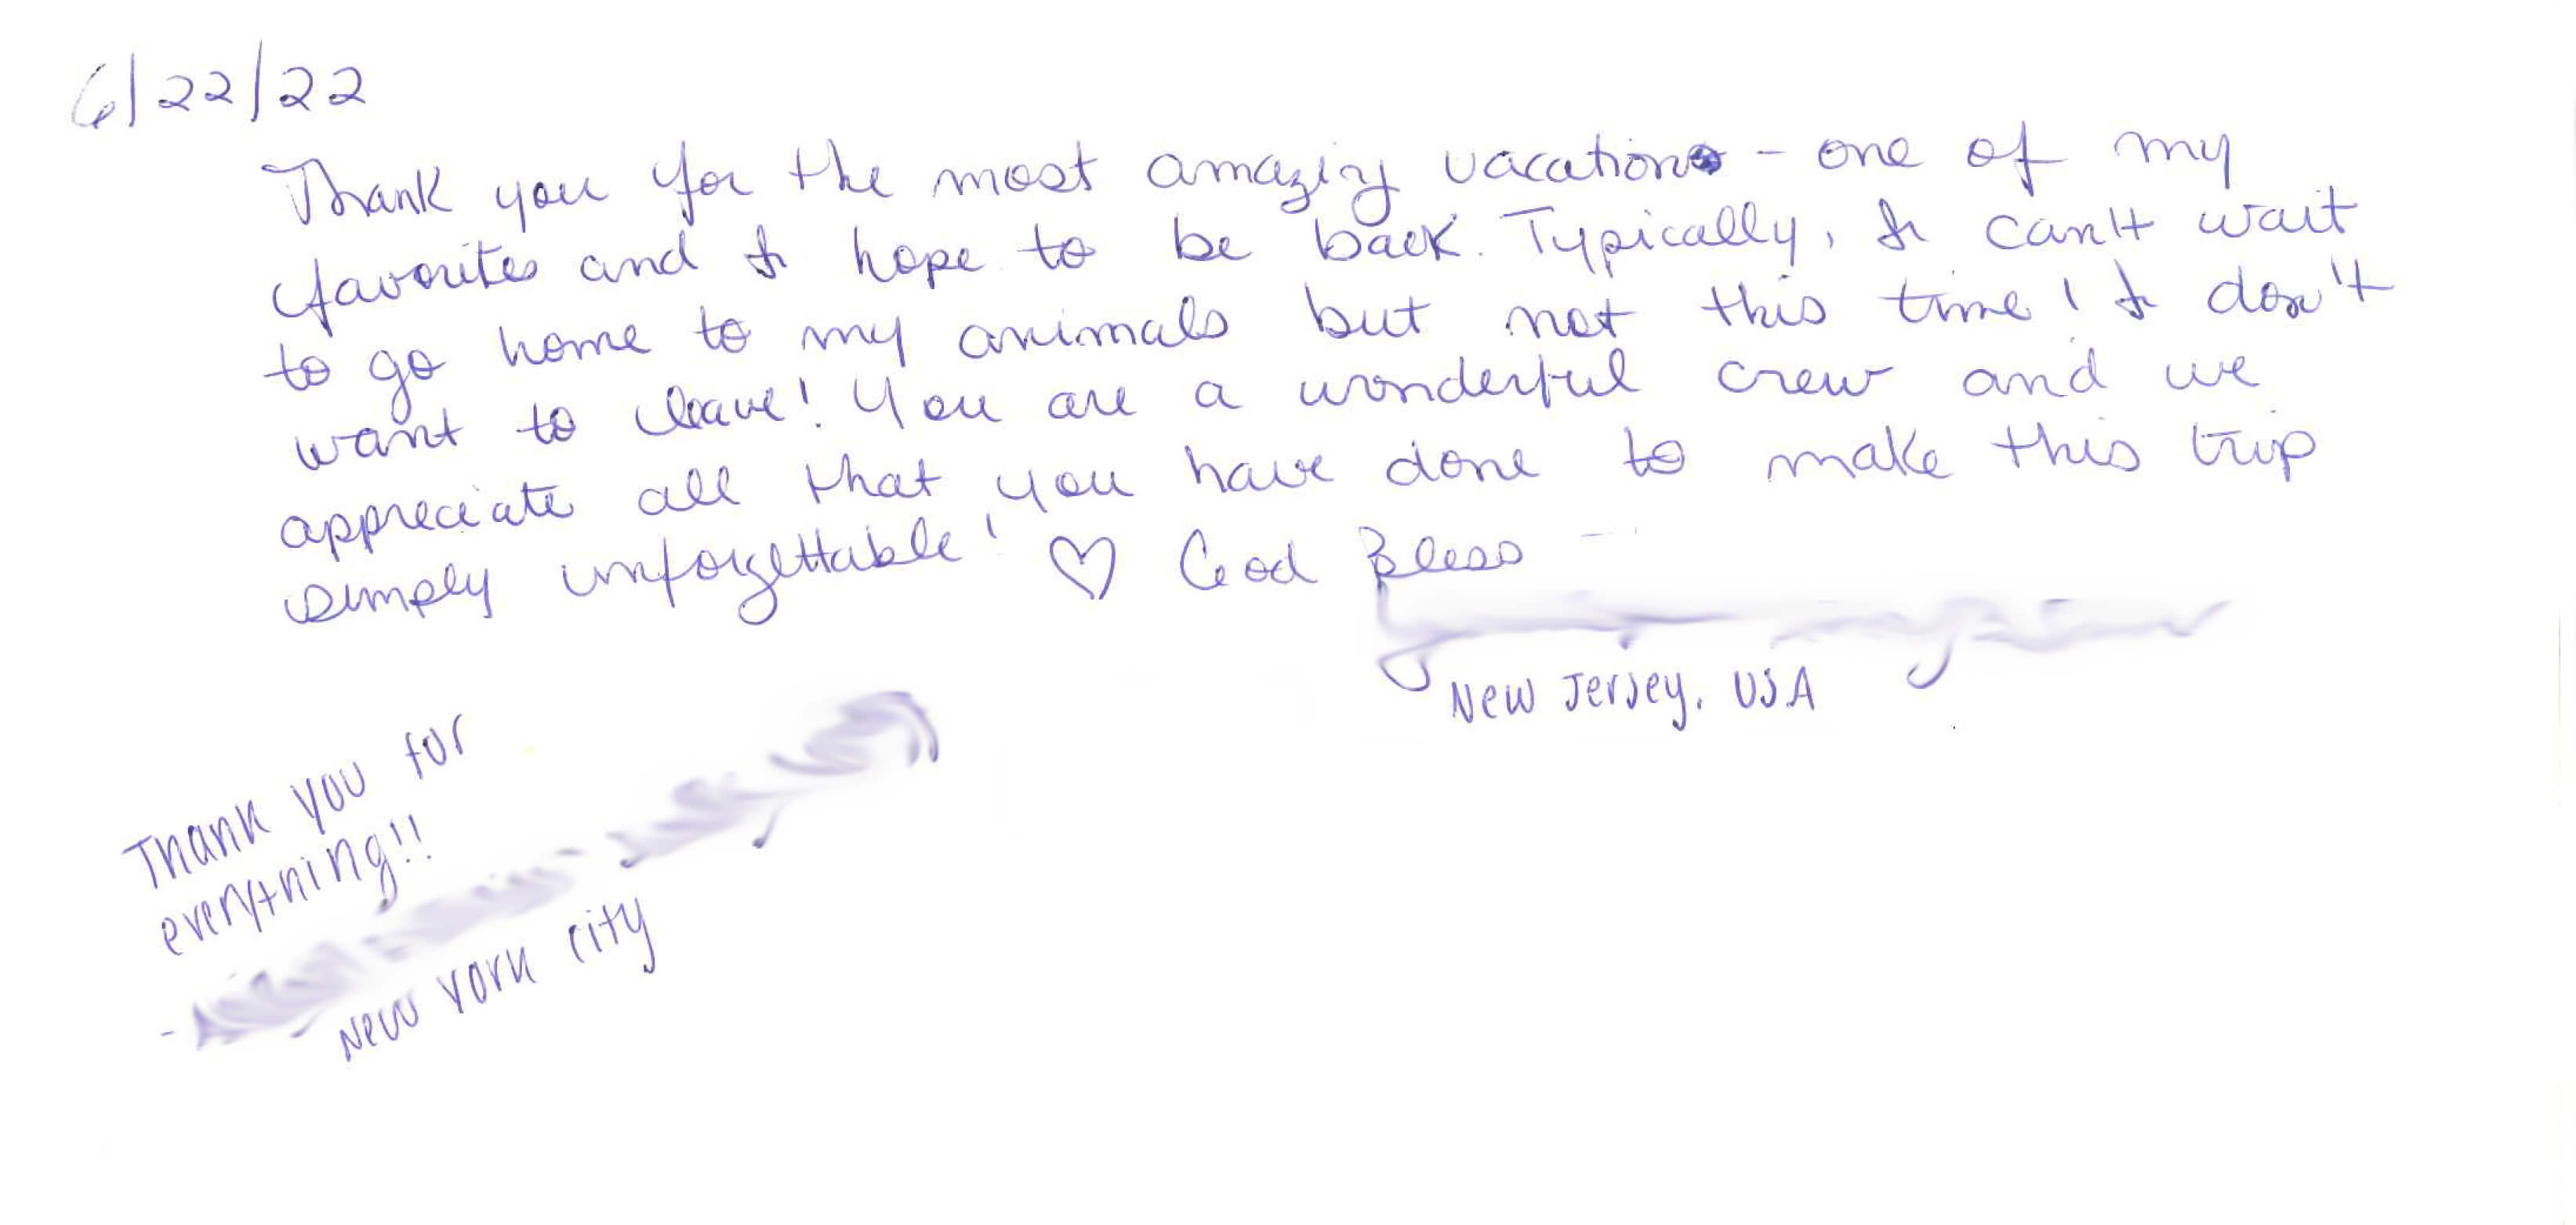 6/22/22
Thank you for the most amazing vacation - one of my
favorites and I hope to be back. Typically, I can't wait
to go home to my animals but not this time! I don't
want to leave! You are a wonderful crew and we
appreciate all that you have done to make this trip
simply unforgettable! ♡ God Bless -
New Jersey, USA
Thank you for
everything!!
-
New York City